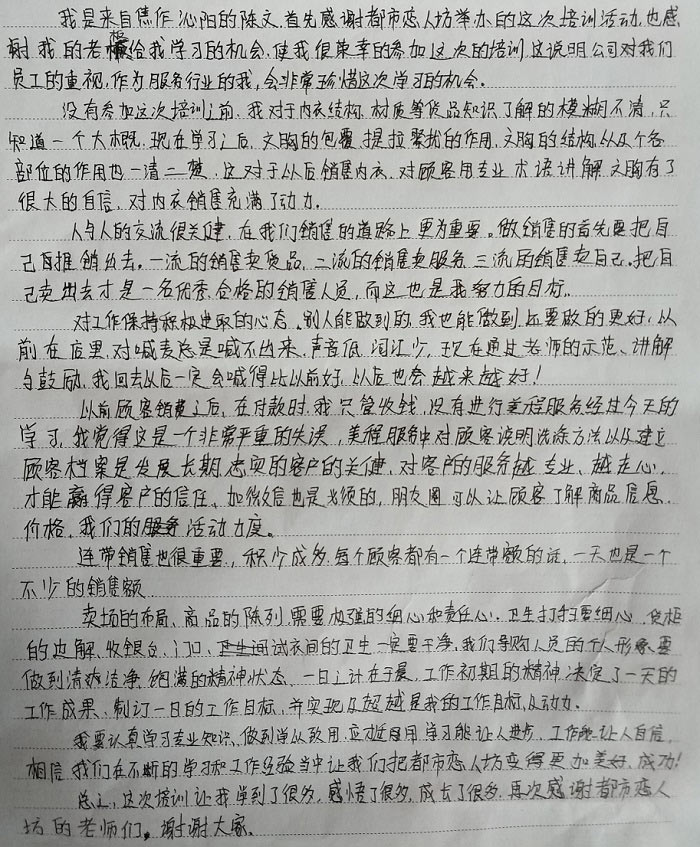 我是来自焦作沁阳的陈文,首先感谢都市恋人坊举办的这次培训活动,也感
谢我的老板给我学习的机会,使我很荣幸的参加这次的培训,这说明公司对我们
员工的重视,作为服务行业的我,会非常珍惜这次学习的机会。
没有参加这次培训之前,我对于内衣结构,材质等货品知识了解的模糊不清,只
知道一个大概,现在学习之后,文胸的包覆,提拉聚拢的作用,文胸的结构以及个各
部位的作用也一清二楚,这对于以后销售内衣,对顾客用专业术语讲解文胸有了
很大的自信,对内衣销售充满了动力.
人与人的交流很关健,在我们销售的道路上更为重要。做销售的首先要把自
己自推销出去。一流的销售卖货品,二流的销售卖服务,三流的销售卖自己.把自
己卖出去才是一名优秀,合格的销售人员,而这也是我努力的目标.
对工作保持积极进取的心态,别人能做到的,我也能做到还要做的更好,以
前在店里,对喊麦总是喊不出来,声音低,词汇少,现在通过老师的示范、讲解
与鼓励,我回去以后一定会喊得比以前好,以后也会越来越好!
以前顾客销费之后,在付款时,我只管收钱,没有进行美程服务,经过今天的
学习,我觉得这是一个非常严重的失误,美程服务中对顾客说明洗涤方法以及建立
顾客档案是发展长期,忠实的客户的关健,对客户的服务越专业、越走心,
才能赢得客户的信任,加微信也是必须的,朋友圈可以让顾客了解商品信息,
价格,我们的服务活动力度。
连带销售也很重要,积少成多,每个顾客都有一个连带额的话,一天也是一个
不少的销售额
卖场的布局、商品的陈列,需要加强的细心和责任心,卫生打扫要细心,货柜
的边解,收银台、门口、卫生间试衣间的卫生一定要干净,我们导购人员的个人形象,要
做到清新洁净,饱满的精神状态、一日之计在于晨,工作初期的精神,决定了一天的
工作成果、制订一日的工作目标,并实现及超越是我的工作目标及动力.
我要认真学习专业知识,做到学以致用,学习能让人进步,工作能让人自信,
相信,我们在不断的学习和工作经验当中让我们把都市恋人坊变得更加美好,成功!
总之,这次培训让我学到了很多,感悟了很多,成长了很多.再次感谢都市恋人
坊的老师们。谢谢大家.